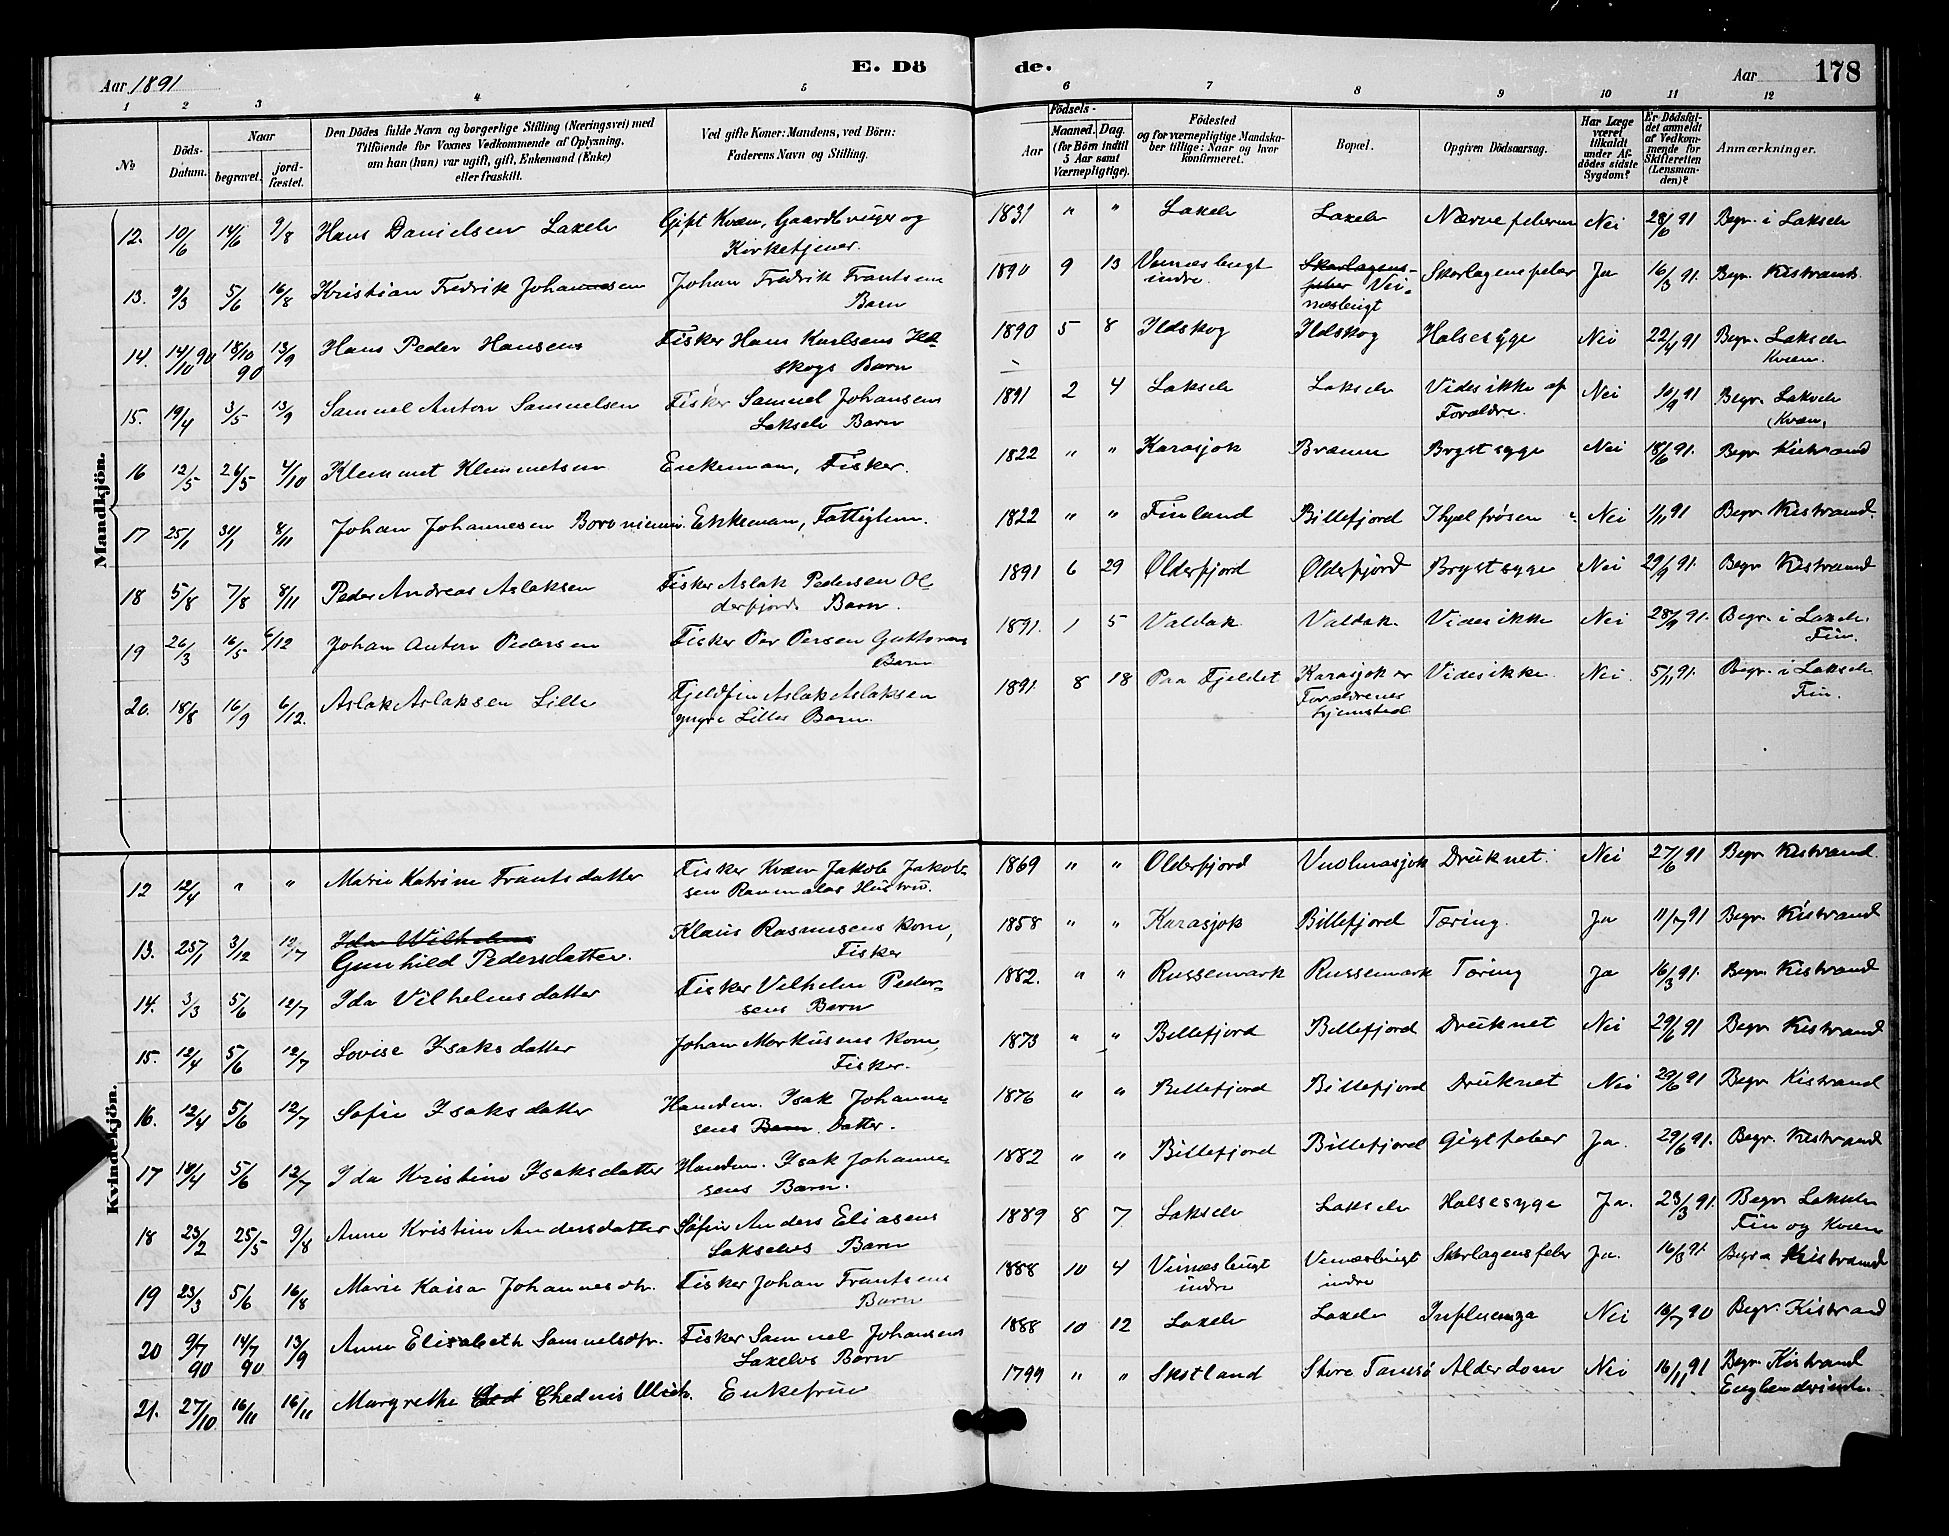 Aar 1891
E. Dö de.
Aar 178
1 2 3 4 5 6 7 8 9 10 11 12
No
Döds-Datum.
Naar
begravet.
jord-fæstet.
Den Dödes fulde Navn og borgerlige Stilling (Næringsvei) med
Tilföiende for Voxnes Vedkommende af Oplysning,
om han (hun) var ugift, gift, Enkemand (Enke)
eller fraskilt.
Ved gifte Koner: Mandens, ved Börn:
Faderens Navn og Stilling.
Födsels-
Aar
Maaned. Dag.
(for Börn indtil
5 Aar samt
Værnepligtige).
Födested
og for værnepligtige Mandska-
ber tillige: Naar og hvor
konfirmeret.
Bopæl.
Opgiven Dödsaarsag.
Har Læge
været
tilkaldt
under Af-
dödes sidste
Sygdom?
Er Dödsfal-
det anmeldt
af Vedkom-
mende for
Skifteretten
(Lensman-
den)?
Anmærkninger.
Mandkjön.
12. 10/6 14/6 9/8 Hans Danielsen Laxelv Gift Kvæn, Gaardbruger og 1831 " " Lakelv Laxelv Nervefeber Nei 28/6 91 Begr. i Lakselv
Kirketjener.
13. 9/3 5/6 16/8 Kristian Fredrik Johannesen Johan Fredrik Frantsens 1890 9 13 Veinæsbugt Skarlagens- Skarlagensfeber Ja 16/3 91. Begr. Kistrand
Barn indre. feber Vei-
næsbugt
14. 14/10 90 18/10 90 13/9 Hans Peder Hansen Fisker Hans Karlsens Ild- 1890 5 8 Ildskog Ildskog Halsesyge Nei 22/4 91 Begr. Lakselv
skogs Barn Kvæn.
15. 19/4 3/5 13/9 Samuel Anton Samuelsen Fisker Samuel Johansens 1891 2 4 Lakselv Lakselv Vides ikke af Nei 10/9 91 Begr. Lakselv
Lakselv Barn Forældre. Kvæn,
16 12/5 26/5 4/10 Klemmet Klemmetsen Enkemann, Fisker. 1822 " " Karasjok Brænne Brystsyge Nei 18/6 91. Begr Kistrand
17 25/1 31/1 8/11 Johan Johannesen Boroniemi. Enkemann, Fattiglem. 1822 " " Finland Billefjord Ihjelfrösen Nei 1/11 91 Begr Kistrand.
18 5/8 7/8 8/11 Peder Andreas Aslaksen Fisker Aslak Pedersen Ol- 1891 6 29 Olderfjord Olderfjord Brystsyge Nei 29/9 91. Begr Kistrand
derfjords Barn.
19 26/3 16/5 6/12 Johan Anton Pedersen Fisker Per Persen Guttorms 1891. 1 5 Valdak Valdak Vides ikke Nei 28/9 91. Begr. i Lakelv.
Barn Fin.
20. 18/8 16/9 6/12. Aslak Aslaksen Lille Fjeldfin Aslak Aslaksen 1891. 8 18 Paa Fjeldet Karasjok er Vides ikke. Nei. 5/11 91. Begr. i Lakselv
yngre Lilles Barn. Forældrenes Fin.
hjemsted.
Kvindekjön.
12 12/4 " " Marie Katrine Frantsdatter Fisker Kvæn Jakob Jakob- 1869 " " Olderfjord Vuolmasjok Druknet. Nei 27/6 91 Begr Kistrand.
sen Raumalas Hustru.
13. 25/1 3/12 12/7 Ida Wilhelms Klaus Rasmusens kone, 1858 " " Karasjok Billefjord Tæring. Ja 11/7 91 Begr. Kistrand
Gunhild Pedersdatter. Fisker
14. 3/3 5/6 12/7 Ida Vilhelmsdatter Fisker Vilhelm Peder- 1882. " " Russemark Russemark Tæring Ja 16/3 91. Begr. Kistrand
sens Barn
15. 12/4 5/6 12/7 Lovise Isaksdatter Johan Markusens kone, 1873 " " Billefjord Billefjord Druknet Nei 29/6 91 Begr Kistrand
Fisker.
16. 12/4 5/6 12/7 Sofie Isaksdatter Handem. Isak Johanne- 1876 " " Billefjord Billefjord Druknet Nei 29/6 91 Begr Kistrand
sens Barn. Datter.
17 18/4 5/6 12/7 Ida Kristine Isaksdatter Handem. Isak Johanne- 1882 " " Billefjord Billefjord Gigtfeber Ja. 29/6 91. Begr. Kistrand
sens Barn.
18 23/2 25/5 9/8 Anne Kristine Andersdatter Söfin Anders Eliasens 1889 8 7 Lakselv Lakselv Halsesyge Ja. 23/3 91. Begr Lakselv
Lakselvs Barn Fin og Kvæn
19 23/3 5/6 16/8 Marie Kaisa Johannesdtr. Fisker Johan Frantsens 1888 10 4 Veinæsbugt Veinæsbugt Skarlagensfeber Ja. 16/3 91. Begr. Kistrand
Barn indre indre
20 9/7 90 14/7 90 13/9 Anne Elisabeth Samuelsdtr. Fisker Samuel Johansens 1888 10 12 Laxelv Laxelv Influenza Nei 16/7 90 Begr. Kistrand
Laxelvs Barn
21. 27/10. 16/11 16/11 Margrethe Chednis Enkefrue 1799 " " Skotland Store Tamsö Alderdom Nei 16/11 91 Begr Kistrand
Englænderinde.